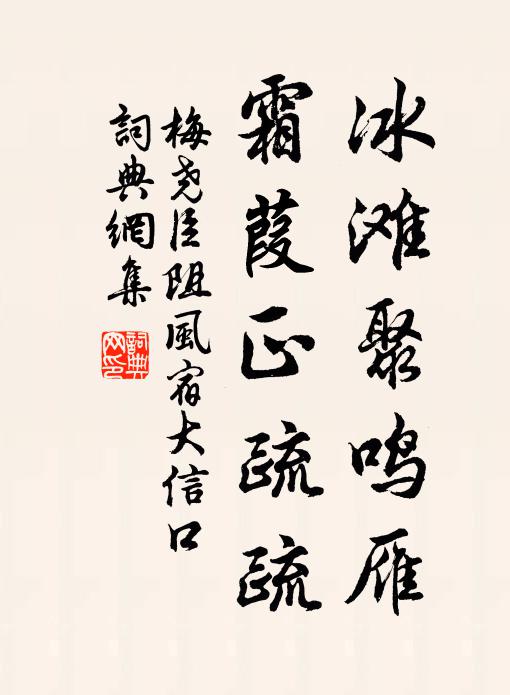 冰滩聚鸣雁
霜葭正疏疏
梅尧臣阻風宿大信口
詞典網集
詞典
网印